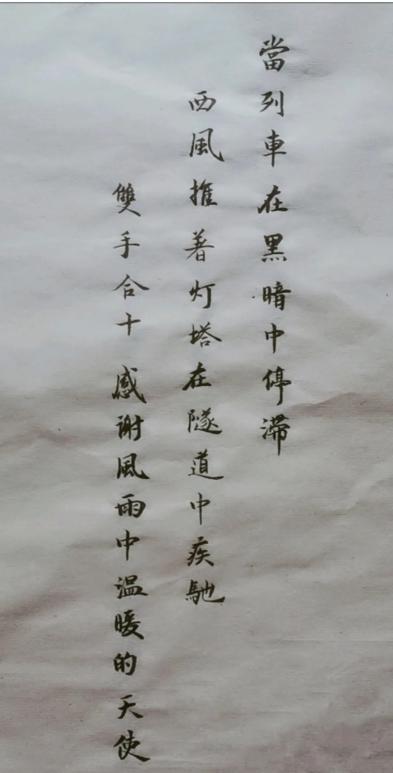 當列車在黑暗中停滯
西風推著灯塔在隧道中疾馳
雙手合十感谢風雨中温暖的天使